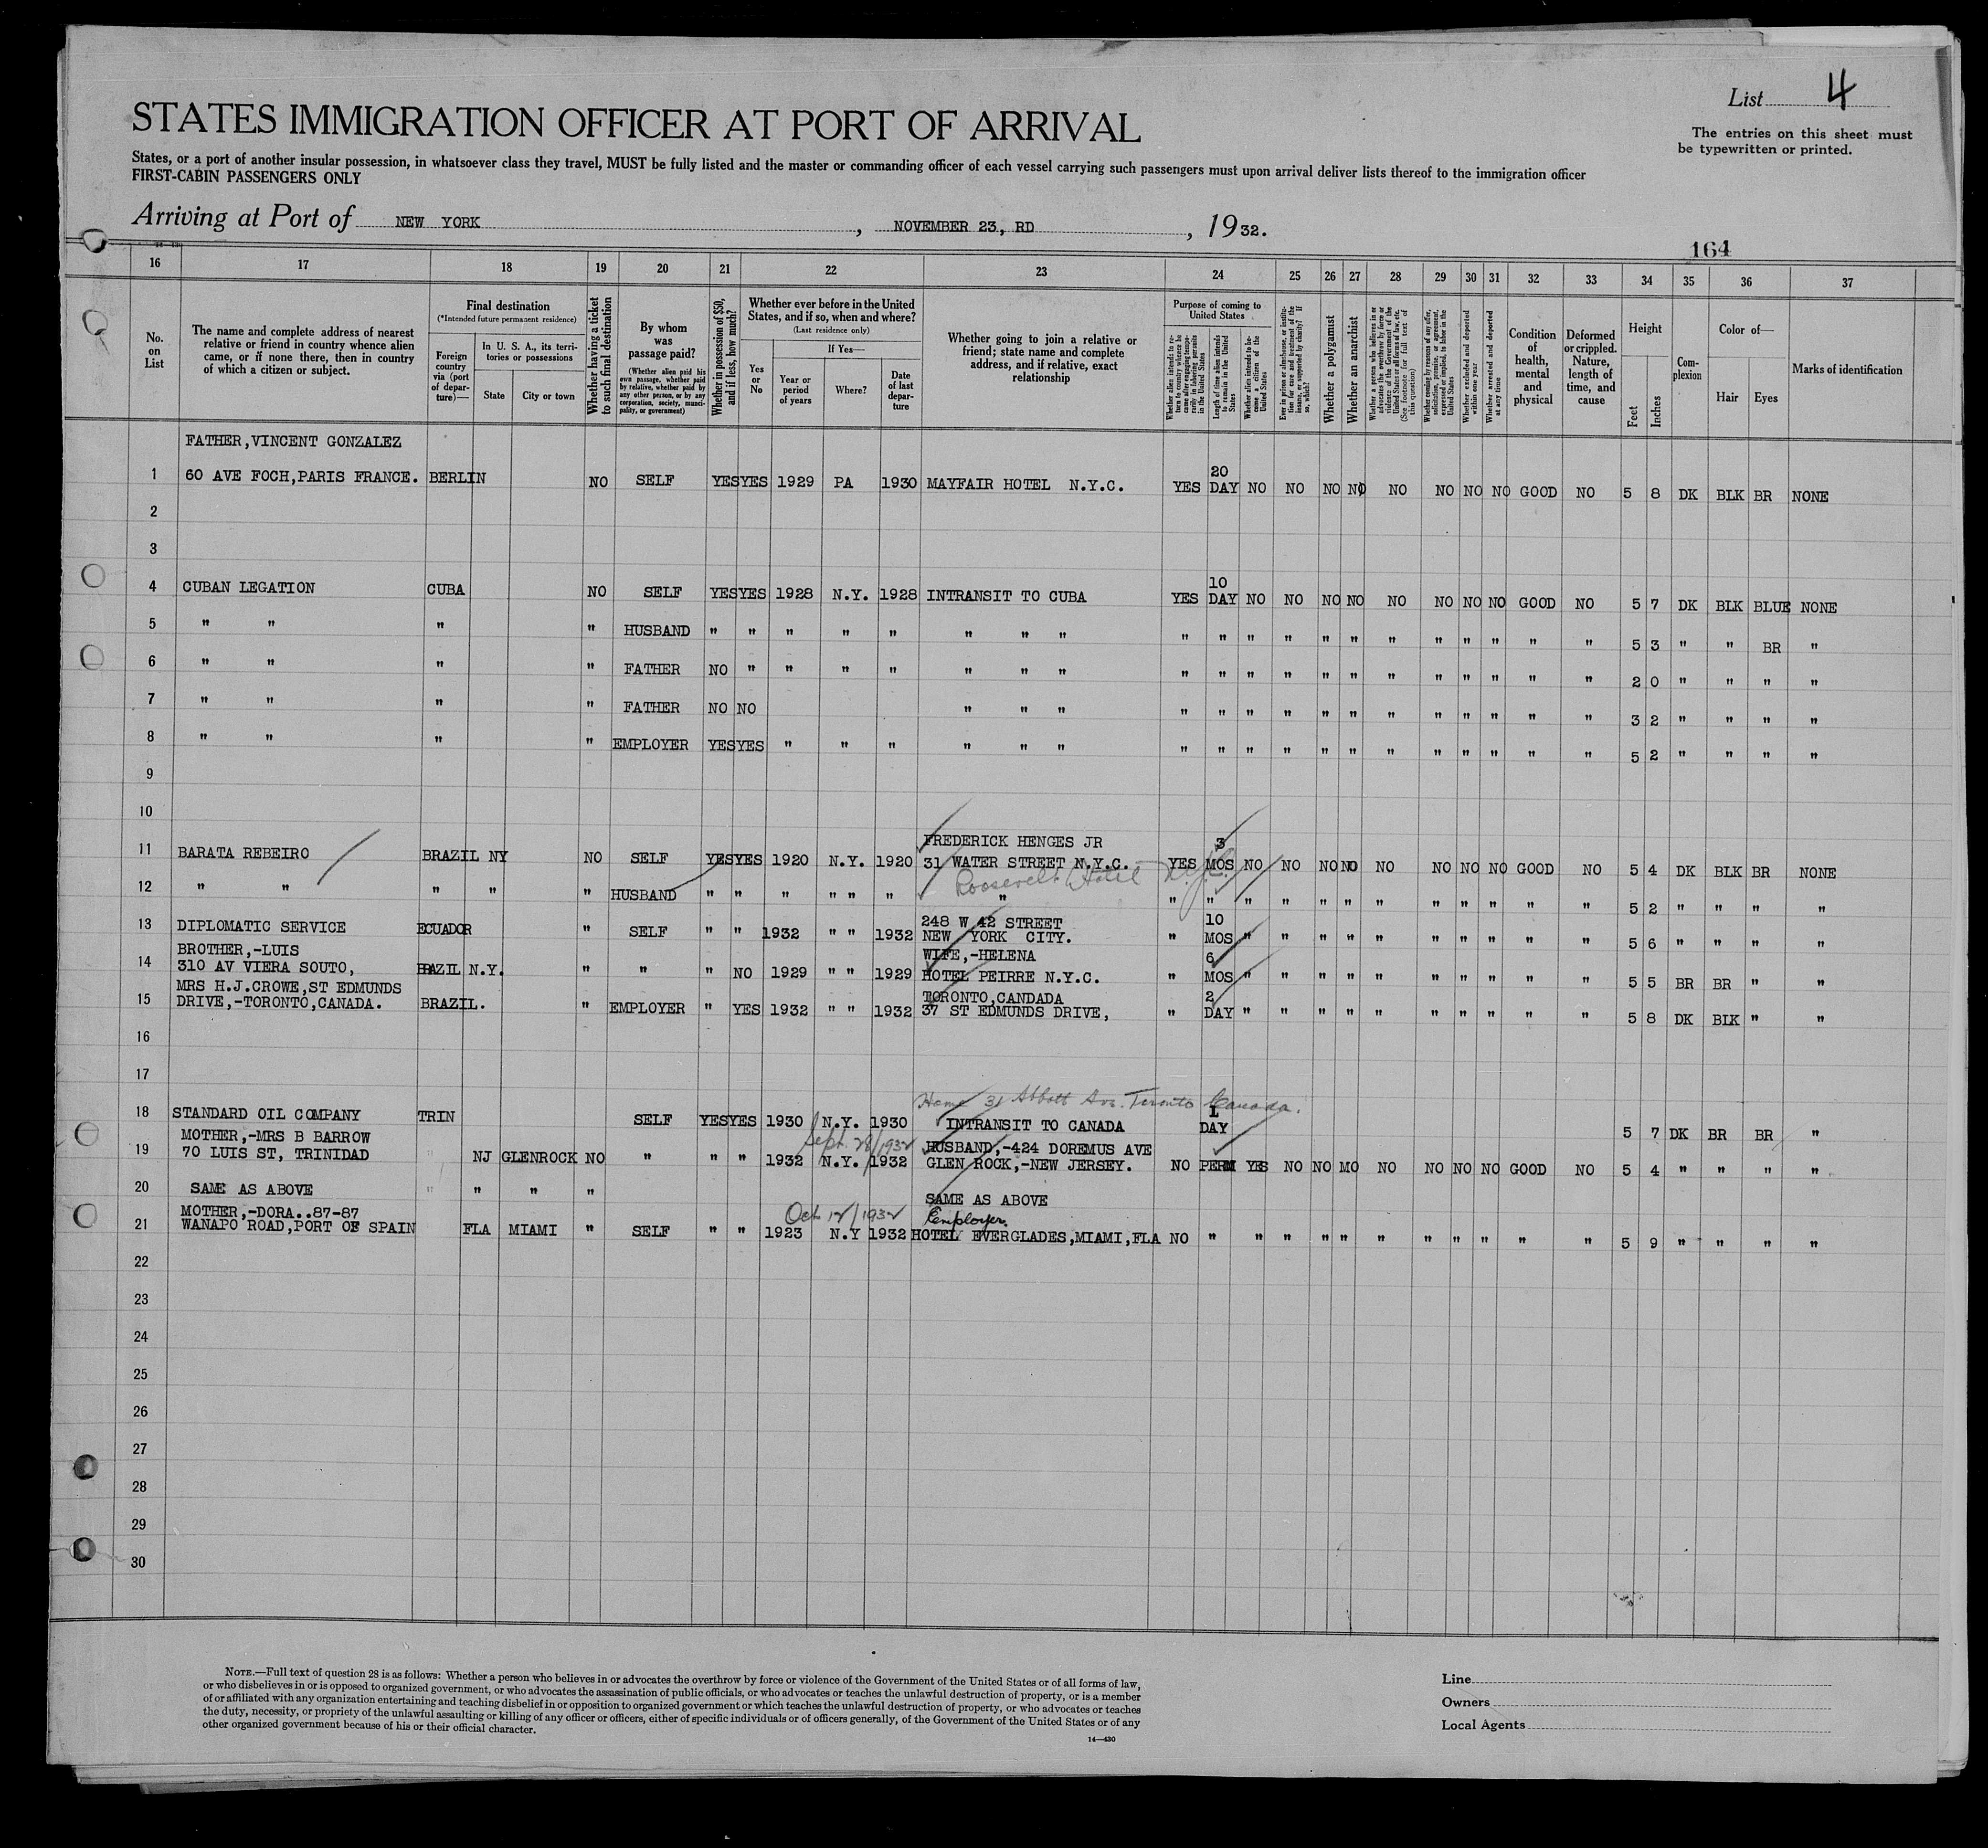 List 4
The entries on this sheet must
be typewritten or printed.
STATES IMMIGRATION OFFICER AT PORT OF ARRIVAL
States, or a port of another insular possession, in whatsoever class they travel, MUST be fully listed and the master or commanding officer of each vessel carrying such passengers must upon arrival deliver lists thereof to the immigration officer
FIRST-CABIN PASSENGERS ONLY
Arriving at Port of NEW YORK, NOVEMBER 23, RD, 1932.
164
16 17 18 19 20 21 22 23 24 25 26 27 28 29 30 31 32 33 34 35 36 37
No. on List
The name and complete address of nearest relative or friend in country whence alien came, or if none there, then in country of which a citizen or subject.
Final destination
(*Intended future permanent residence)
Foreign country via (port of departure)—
In U. S. A., its territories or possessions
State
City or town
Whether having a ticket to such final destination
By whom was passage paid?
(Whether alien paid his own passage, whether paid by relative, whether paid by any other person, or by any corporation, society, municipality, or government)
Whether in possession of $50, and if less, how much?
Whether ever before in the United States, and if so, when and where?
(Last residence only)
Yes or No
If Yes—
Year or period of years
Where?
Date of last departure
Whether going to join a relative or friend; state name and complete address, and if relative, exact relationship
Purpose of coming to United States
Whether alien intends to return to country whence he came after engaging temporarily in laboring pursuits in the United States
Length of time alien intends to remain in the United States
Whether alien intends to become a citizen of the United States
Ever in prison or almshouse, or institution for care and treatment of the insane, or supported by charity? If so, which?
Whether a polygamist
Whether an anarchist
Whether a person who believes in or advocates the overthrow by force or violence of the Government of the United States or all forms of law, etc. (See footnote for full text of this question)
Whether coming by reason of any offer, solicitation, promise, or agreement, expressed or implied, to labor in the United States
Whether excluded and deported within one year
Whether arrested and deported at any time
Condition of health, mental and physical
Deformed or crippled. Nature, length of time, and cause
Height
Feet
Inches
Complexion
Color of—
Hair
Eyes
Marks of identification
FATHER,VINCENT GONZALEZ
1 60 AVE FOCH,PARIS FRANCE. BERLIN NO SELF YES YES 1929 PA 1930 MAYFAIR HOTEL N.Y.C. YES 20 DAY NO NO NO NO NO NO NO NO GOOD NO 5 8 DK BLK BR NONE
2
3
4 CUBAN LEGATION CUBA NO SELF YES YES 1928 N.Y. 1928 INTRANSIT TO CUBA YES 10 DAY NO NO NO NO NO NO NO NO GOOD NO 5 7 DK BLK BLUE NONE
5 " " " " HUSBAND " " " " " " " " " " " " " " " " " " " " 5 3 " " BR "
6 " " " " FATHER NO " " " " " " " " " " " " " " " " " " " 2 0 " " " "
7 " " " " FATHER NO NO " " " " " " " " " " " " " " " 3 2 " " " "
8 " " " " EMPLOYER YES YES " " " " " " " " " " " " " " " " " " 5 2 " " " "
9
10
11 BARATA REBEIRO BRAZIL NY NO SELF YES YES 1920 N.Y. 1920 FREDERICK HENGES JR
31 WATER STREET N.Y.C. YES 3 MOS NO NO NO NO NO NO NO NO GOOD NO 5 4 DK BLK BR NONE
Roosevelt Hotel N.Y.C.
12 " " " " " HUSBAND " " " " " " " " " " " " " " " " " " " " 5 2 " " " "
13 DIPLOMATIC SERVICE ECUADOR " SELF " " 1932 " " 1932 248 W 42 STREET
NEW YORK CITY. " 10 MOS " " " " " " " " " " 5 6 " " " "
BROTHER,-LUIS
14 310 AV VIERA SOUTO, BRAZIL N.Y. " " " NO 1929 " " 1929 WIFE,-HELENA
HOTEL PEIRRE N.Y.C. " 6 MOS " " " " " " " " " " 5 5 BR BR " "
MRS H.J.CROWE,ST EDMUNDS
15 DRIVE,-TORONTO,CANADA. BRAZIL. " EMPLOYER " YES 1932 " " 1932 TORONTO,CANDADA
37 ST EDMUNDS DRIVE, " 2 DAY " " " " " " " " " " 5 8 DK BLK " "
16
17
Home 31 Abbott Ave. Toronto Canada.
18 STANDARD OIL COMPANY TRIN SELF YES YES 1930 N.Y. 1930 INTRANSIT TO CANADA 1 DAY 5 7 DK BR BR "
MOTHER,-MRS B BARROW Sept. 28/1932
19 70 LUIS ST, TRINIDAD " NJ GLENROCK NO " " " 1932 N.Y. 1932 HUSBAND,-424 DOREMUS AVE
GLEN ROCK,-NEW JERSEY. NO PERM YES NO NO MO NO NO NO NO GOOD NO 5 4 " " " "
20 SAME AS ABOVE " " " " SAME AS ABOVE
MOTHER,-DORA..87-87 Oct 12/1932 Employer.
21 WANAPO ROAD,PORT OF SPAIN FLA MIAMI " SELF " " 1923 N.Y 1932 HOTEL EVERGLADES,MIAMI,FLA NO " " " " " " " " " " " 5 9 " " " "
22
23
24
25
26
27
28
29
30
NOTE.—Full text of question 28 is as follows: Whether a person who believes in or advocates the overthrow by force or violence of the Government of the United States or of all forms of law,
or who disbelieves in or is opposed to organized government, or who advocates the assassination of public officials, or who advocates or teaches the unlawful destruction of property, or is a member
of or affiliated with any organization entertaining and teaching disbelief in or opposition to organized government or which teaches the unlawful destruction of property, or who advocates or teaches
the duty, necessity, or propriety of the unlawful assaulting or killing of any officer or officers, either of specific individuals or of officers generally, of the Government of the United States or of any
other organized government because of his or their official character.
14—430
Line
Owners
Local Agents